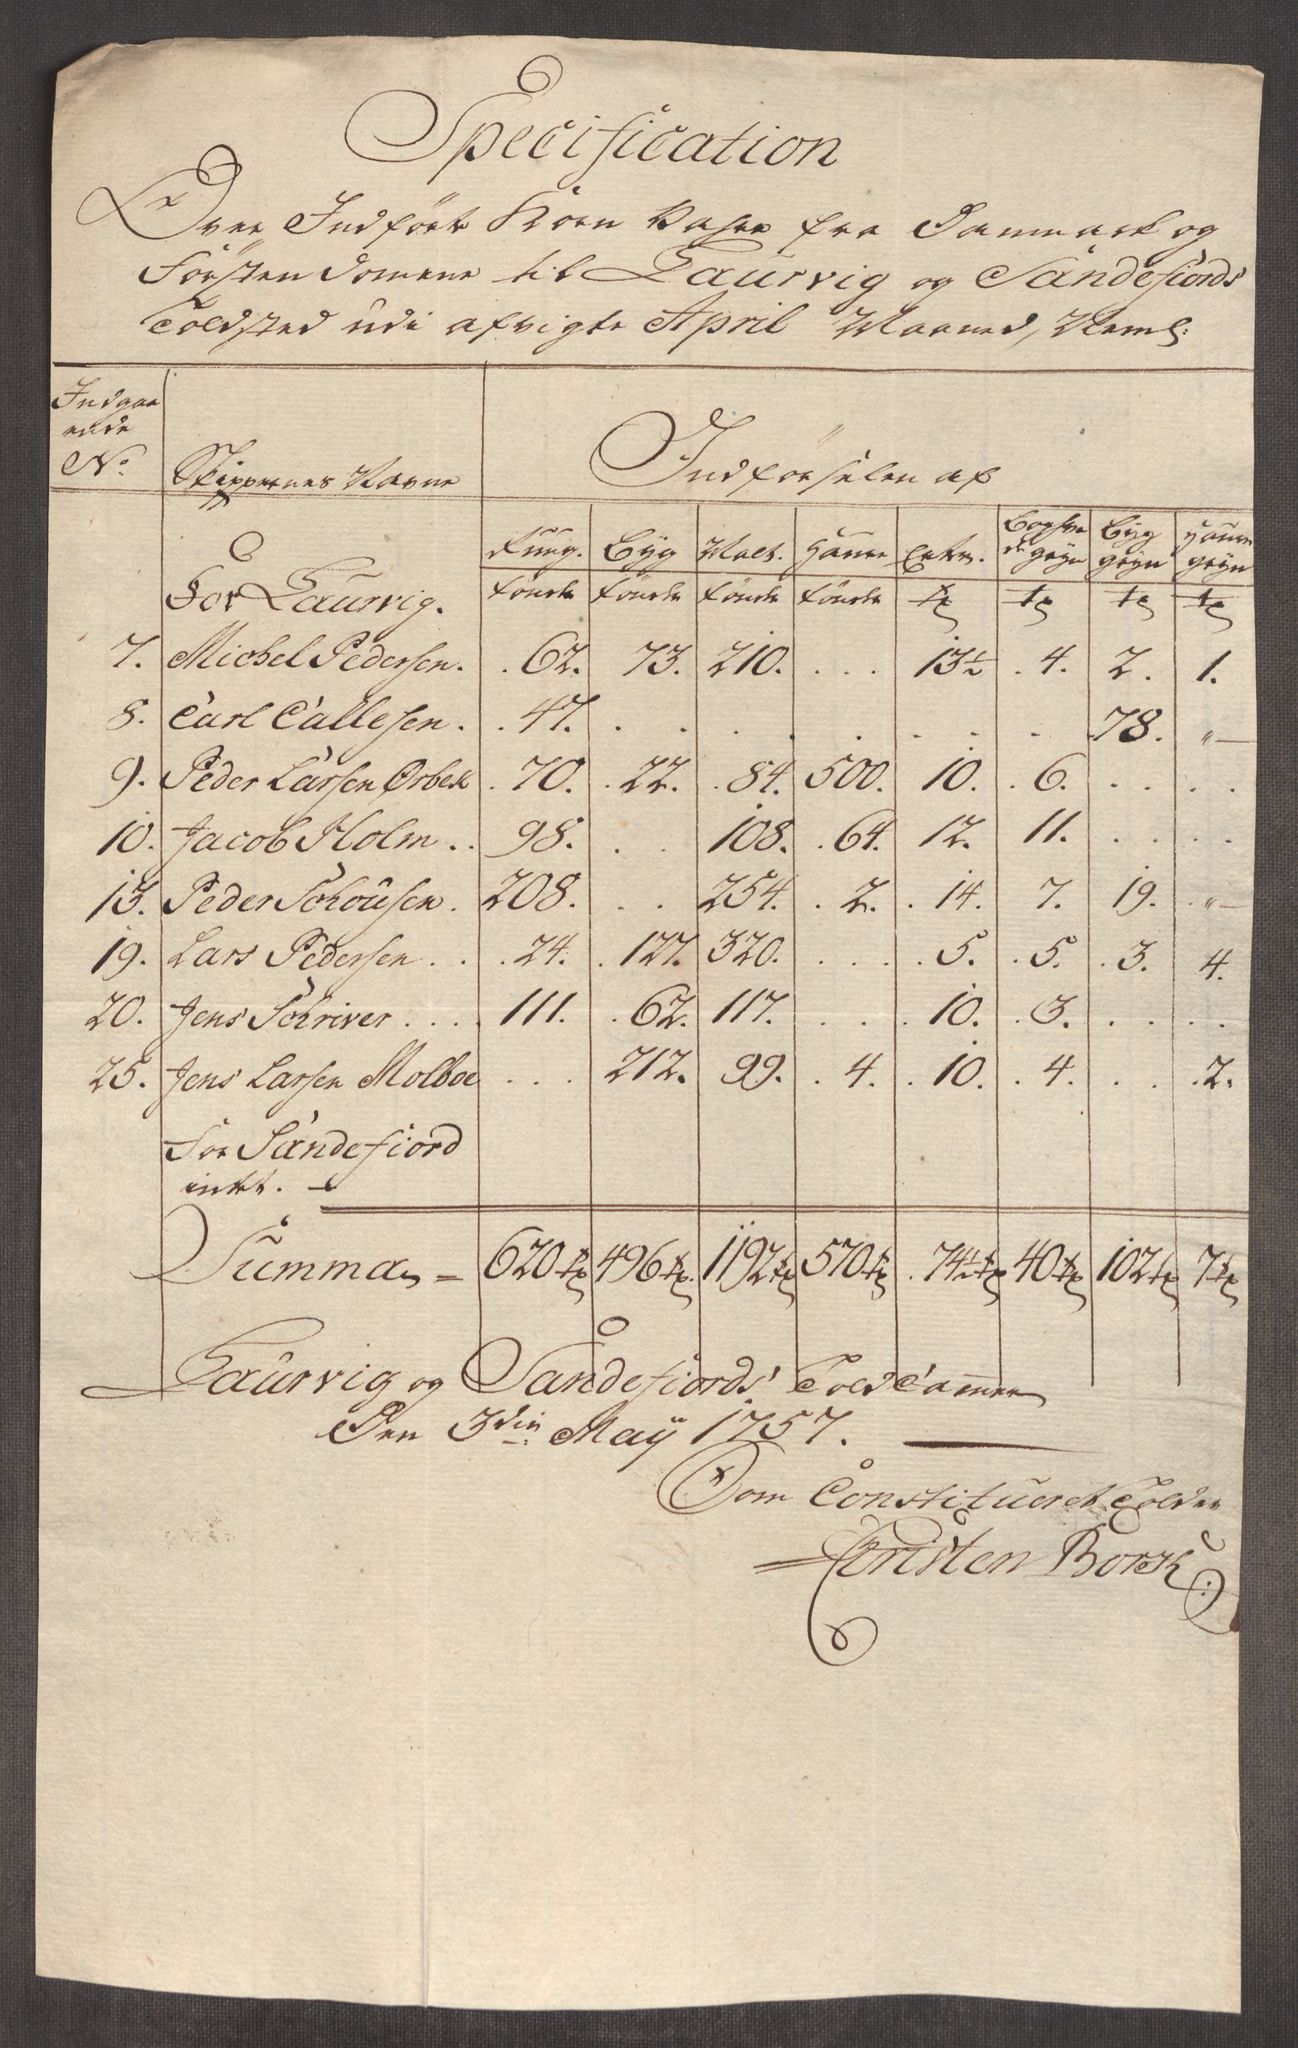 Specification
Over Indført Korn Vahre fra Danmark og
Førstendomene til Laurvig og Sandefiords
Toldsted udi afvigte April Maaned, Neml:
Indgaa
ende
No. Skippernes Navne Indførselen af
Rung. Byg Malt. Haure Erter. Boghve
de gryn Byg
gryn Haure
gryn
For Laurvig. Tønder Tønder Tønder Tønder tr tr tr tr
7. Michel Pedersen. . 62. 73. 210. . . . 13½ . 4. 2. 1.
8. Carl Callesen. . 47. . . . . . . . . 78. "—
9. Peder Larsen Ørbek . 70. . 22. . 84. 500. 10. . 6. . . . . .
10. Jacob Holm . . 98. . . 108. . 64. 12. 11. . . . . .
13. Peder Schousen. 208. . . 254. . 2. . 14. 7. 19. . "—
19. Lars Pedersen . . . 24. . 127. 320. . . . . 5. . 5. . 3. 4.
20. Jens Schriver . . . . 111. . 62. 117. . . . 10. . 3. . . . . .
25. Jens Larsen Molboe . . . 212. 99. . 4. . 10. . 4. . . . 2.
For Sandefiord
intet. —
Summa = 620 tr 496 tr 1192 tr 570 tr . 74½ tr 40 tr 102 tr 7 tr
Laurvig og Sandefiords Told Camer
Den 3die May 1757.
Som Constitueret Tolder
Christen Borch